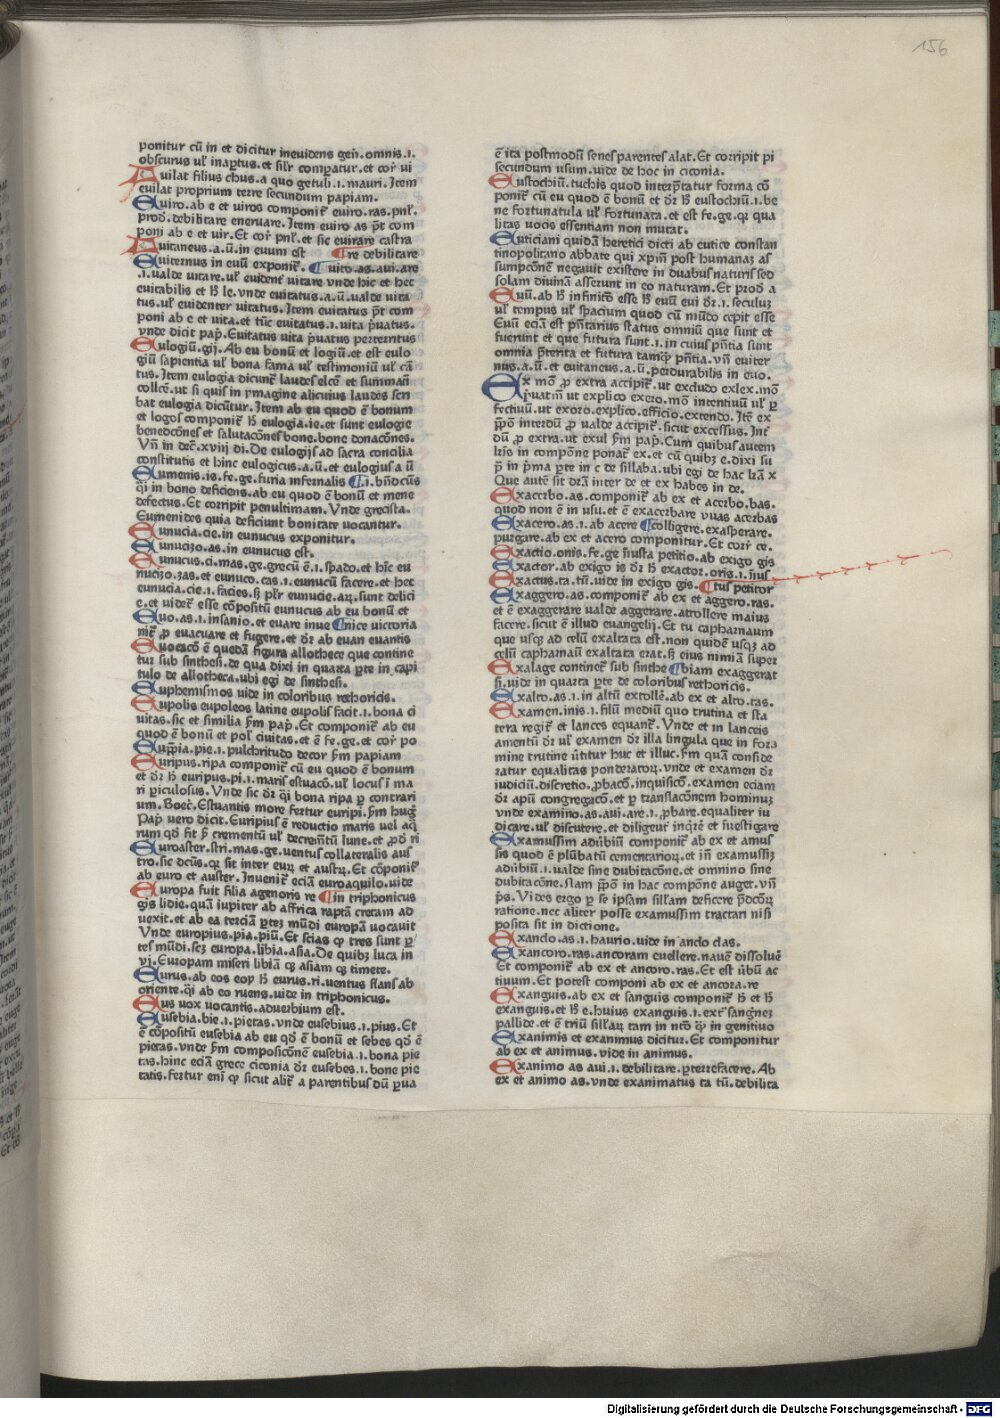 156
ponitur cū in et dicitur ineuidens geñ. omnis .i.
obscurus ul' inaptus. et silr̄ compatur. et cor̄ ui
Auilat filius chus. a quo getuli .i. mauri. Item
euilat proprium terre secundum papiam.
Euiro. ab e et uiros componit᷑ euiro. ras. pnl̄.
prod. debilitare eneruare. Item euiro as p̄t com
poni ab e et uir. Et cor̄ pnl̄. et sic euirare castra
Auitaneus. a. ū. in euum est ¶ re debilitare
Euiternus in euū exponit᷑. ¶ uito. as. aui. are
.i. ualde uitare. ul' euident᷑ uitare vnde hic et hec
euitabilis et ħ le. vnde euitatus. a. ū. ualde uita
tus. ul' euidenter uitatus. Item euitatus p̄t com
poni ab e et uita. et tūc euitatus .i. uita p̄uatus.
vnde dicit pap̄. Euitatus uita p̄uatus peremtus
Eulogiū. gij. Ab eu bonū et logiū. et est eulo
giū sapientia ul' bona fama ul' testimoniū ul' cā
tus. Item eulogia dicunt᷑ laudes elcē et summañ
collcē. ut si quis in ymagine alicuius laudes scri
bat eulogia dicūtur. Item ab eu quod ē bonum
et logos componit᷑ ħ eulogia. ie. et sunt eulogie
benedcōnes et salutacōnes bone. bone donacōnes.
Vñ in dec̄. xviij di. De eulogijs ad sacra concilia
constitutis et hinc eulogicus. a. ū. et eulogius a ū
Eumenis. is. fe. ge. furia infernalis ¶ .i. bñdcūs
q̄i in bono deficiens. ab eu quod ē bonū et mene
defectus. Et corripit penultimam. Vnde grecista.
Eumenides quia deficiunt bonitate uocantur.
Eunucia. cie. in eunucus exponitur.
Eunucizo. as. in eunucus est.
Eunucus. ci. mas. ge. grecū ē .i. spado. et hīc eu
nucizo. zas. et eunuco. cas .i. eunucū facere. et hec
eunucia. cie .i. facies. ꝫ plr̄ eunucie. aꝝ. sunt delici
e. et uidet᷑ esse cōpositū eunucus ab eu bonū et
Euo. as .i. insanio. et euare inue ¶ nice uictoria
nit᷑ ꝓ euacuare et fugere. et dr̄ ab euan euantis
Euocacō ē quedā figura allothece que contine
tur sub sinthesi. de qua dixi in quarta ꝑte in capi
tulo de allotheca. ubi egi de sinthesi.
Euphemismos uide in coloribus rethoricis.
Eupolis eupoleos latine eupolis facit .i. bona ci
uitas. sic et similia ẜm pap̄. Et componit᷑ ab eu
quod ē bonū et pol' ciuitas. et ē fe. ge. et cor̄ po
Eup̄pia. pie .i. pulchritudo decor ẜm papiam
Euripus. ripa componit᷑ cū eu quod ē bonum
et dr̄ ħ euripus. pi .i. maris estuacō. ul' locus ī ma
ri ꝑiculosus. Vnde sic dr̄ q̄i bona ripa ꝑ contrari
um. Boec̄. Estuantis more fertur euripi. ẜm hug̃
Pap̄ uero dicit. Euripius ē reductio maris uel aq̄
rum qd̄ fit ꝑ crementū ul' decremtū lune. et ꝓd̄ ri
Euroaster. stri. mas. ge. uentus collateralis aus
tro. sic dcūs. qꝛ sit inter eurꝝ et austrꝝ. Et cōponit᷑
ab euro et auster. Inuenit᷑ eciā euroaquilo. uide
Europa fuit filia agenoris re ¶ in triphonicus
gis lidie. quā iupiter ab affrica raptā cretam ad
uexit. et ab ea terciā ꝑtēz mūdi europā uocauit
Vnde europius. pia. piū. Et scias ꝙ tres sunt ꝑ
tes mūdi. scꝫ europa. libia. asia. De quibꝫ luca in
vj. Europam miseri libiā ꝙ asiam ꝙ timete.
Eurus. ab eos eoy ħ eurus. ri. uentus flans ab
oriente. q̄i ab eo ruens. uide in triphonicus.
Eus uox uocantis. aduerbium est.
Eusebia. bie .i. pietas. vnde eusebius .i. pius. Et
ē cōpositū eusebia ab eu qd̄ ē bonū et sebes qd̄ ē
pietas. vnde ẜm composicōnē eusebia .i. bona pie
tas. hinc eciā grece ciconia dr̄ eusebes .i. bone pie
tatis. fertur eni ꝙ sicut alit᷑ a parentibus dū ꝑua
ē ita postmodū senes parentes alat. Et corripit pi
secundum usum. uide de hoc in ciconia.
Eustochiū. tuchis quod interp̄tatur forma cō
ponit᷑ cū eu quod ē bonū et dr̄ ħ eustochiū .i. be
ne fortunatula ul' fortunata. et est fe. ge. qꝛ qua
litas uocis essentiam non mutat.
Euticiani quidā heretici dicti ab eutice constan
tinopolitano abbate qui xpim̄ post humanaꝫ as
sumpcōnē negauit existere in duabus naturis sed
solam diuinā asserunt in eo naturam. Et prod̄ a
Euū. ab ħ infinito esse ħ euū eui dr̄ .i. seculuꝫ
ul' tempus ul' spacium quod cū mūdo cepit esse
Euū eciā est pn̄tarius status omniū que sunt et
fuerunt et que futura sunt .i. in cuius pn̄tia sunt
omnia p̄terita et futura tamq̄ pn̄tia. vñ euiter
nus. a. ū. et euitaneus. a. ū. perdurabilis in euo.
Ex mō ꝓ extra accipit᷑. ut excludo exlex. mō
p̄uatiū ut explico exero. mō intentiuū ul' ꝑ
fectiuū. ut exoro. explico. efficio. extendo. Itē ex
p̄pō interdū ꝓ ualde accipit᷑. sicut excessus. Int᷑
dū ꝓ extra. ut exul ẜm pap̄. Cum quibus autem
lr̄is in compōne ponat᷑ ex. et cū quibꝫ e. dixi su
p̄ in p̄ma ꝑte in c de sillaba. ubi egi de hac lr̄a x
Que autē sit dr̄a inter de et ex habes in de.
Exacerbo. as. componit᷑ ab ex et acerbo. bas.
quod non ē in usu. et ē exacerbare vuas acerbas
Exacero. as .i. ab acere ¶ colligere. exasperare.
purgare. ab ex et acero componitur. Et cor̄ ce.
Exactio. onis. fe. ge īiusta petitio. ab exigo gis
Exactor. ab exigo is dr̄ ħ exactor. oris .i. īius
Exactus. ta. tū. uide in exigo gis. ¶ tus petitor
Exaggero. as. componit᷑ ab ex et aggero. ras.
et ē exaggerare ualde aggerare. attollere maius
facere. sicut ē illud euangelij. Et tu capharnaum
que usqꝫ ad celū exaltata est. non quidē usqꝫ ad
celū capharnaū exaltata erat. ꝫ eius nimiā super
Exalage continet᷑ sub sinthe ¶ biam exaggerat
si. uide in quarta ꝑte de coloribus rethoricis.
Exalto. as .i. in altū extollē. ab ex et alto. tas.
Examen. inis .i. filū mediū quo trutina et sta
tera regit᷑ et lances equant᷑. Vnde et in lanceis
amentū dr̄ ul' examen dr̄ illa lingula que in fora
mine trutine ūtitur huc et illuc. ẜm quā conside
ratur equalitas ponderatoꝝ. vnde et examen dr̄
iudiciū. discretio. ꝓbacō. inquisicō. examen eciam
dr̄ apiū congregacō. et ꝑ translacōnem hominuꝫ
vnde examino. as. aui. are .i. ꝓbare. equaliter iu
dicare. ul' discutere. et diligent᷑ inq̄rē et īuestigare
Examussim aduerbiū componit᷑ ab ex et amus
sis quod ē plūbatū cementarioꝝ. et iñ examussiꝫ
aduerbiū .i. ualde sine dubitacōne. et omnino sine
dubitacōne. Nam p̄pō in hac compōne auget. vñ
p̄s. Vides ergo ꝑ se ipsam sill'am deficere p̄dcōꝝ
ratione. nec aliter posse examussim tractari nisi
posita sit in dictione.
Exando. as .i. haurio. uide in ando das.
Exancoro. ras. ancoram euellere. nauē dissoluē
Et componit᷑ ab ex et ancoro. ras. Et est ūbū ac
tiuum. Et potest componi ab ex et ancora. re
Exanguis. ab ex et sanguis componit᷑ ħ et ħ
exanguis. et ħ e. huius exanguis .i. ext᷑ sangneꝫ
pallide. et ē triū sill'aꝝ tam in ntō q̄ in genitiuo
Exanimis et exanimus dicitur. Et componitur
ab ex et animus. vide in animus.
Exanimo as aui .i. debilitare. ꝑterrefacere. Ab
ex et animo as. vnde exanimatus ta tū. debilita
Digitalisierung gefördert durch die Deutsche Forschungsgemeinschaft - DFG